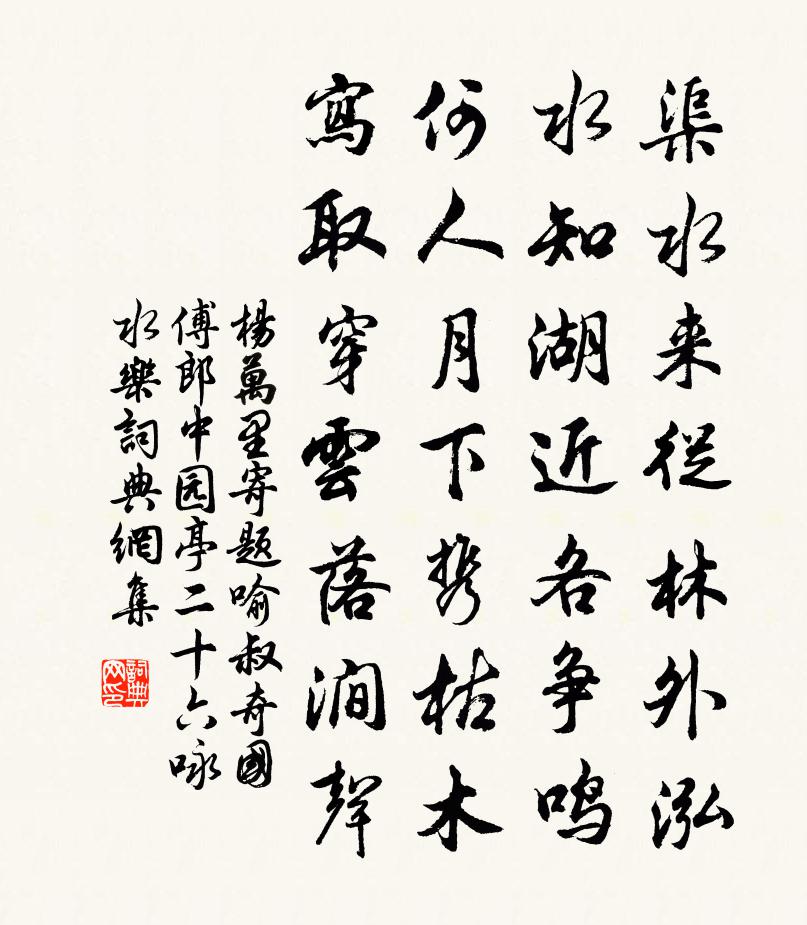 渠水来從林外泓
水知湖近各争鸣
何人月下携枯木
寫取穿雲落澗聲
楊萬里寄題喻叔奇國
傅郎中园亭二十六咏
水樂詞典網集
詞典
网印